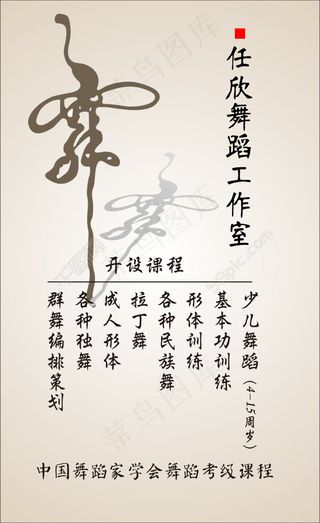 任欣舞蹈工作室
开设课程
少儿舞蹈（4-15周岁）
基本功训练
形体训练
各种民族舞
拉丁舞
成人形体
各种独舞
群舞编排策划
中国舞蹈家学会舞蹈考级课程